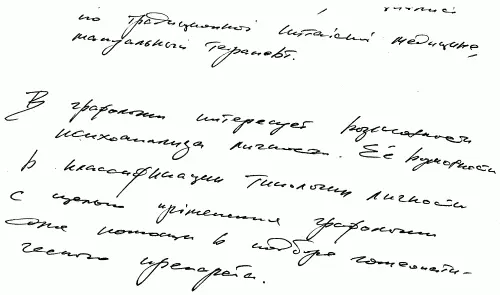 по традиционной китайской медицине,
мануальный терапевт.
В графологии интересует возможность
психоанализа личности. Её возможности
в классификации типологии личности
с целью применения графологии
помощи в подборе гомеопати-
ческого препарата.